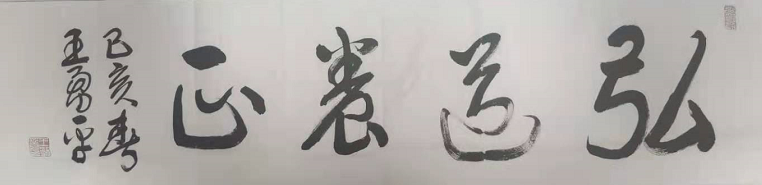 弘道养正
己亥春
王勇平